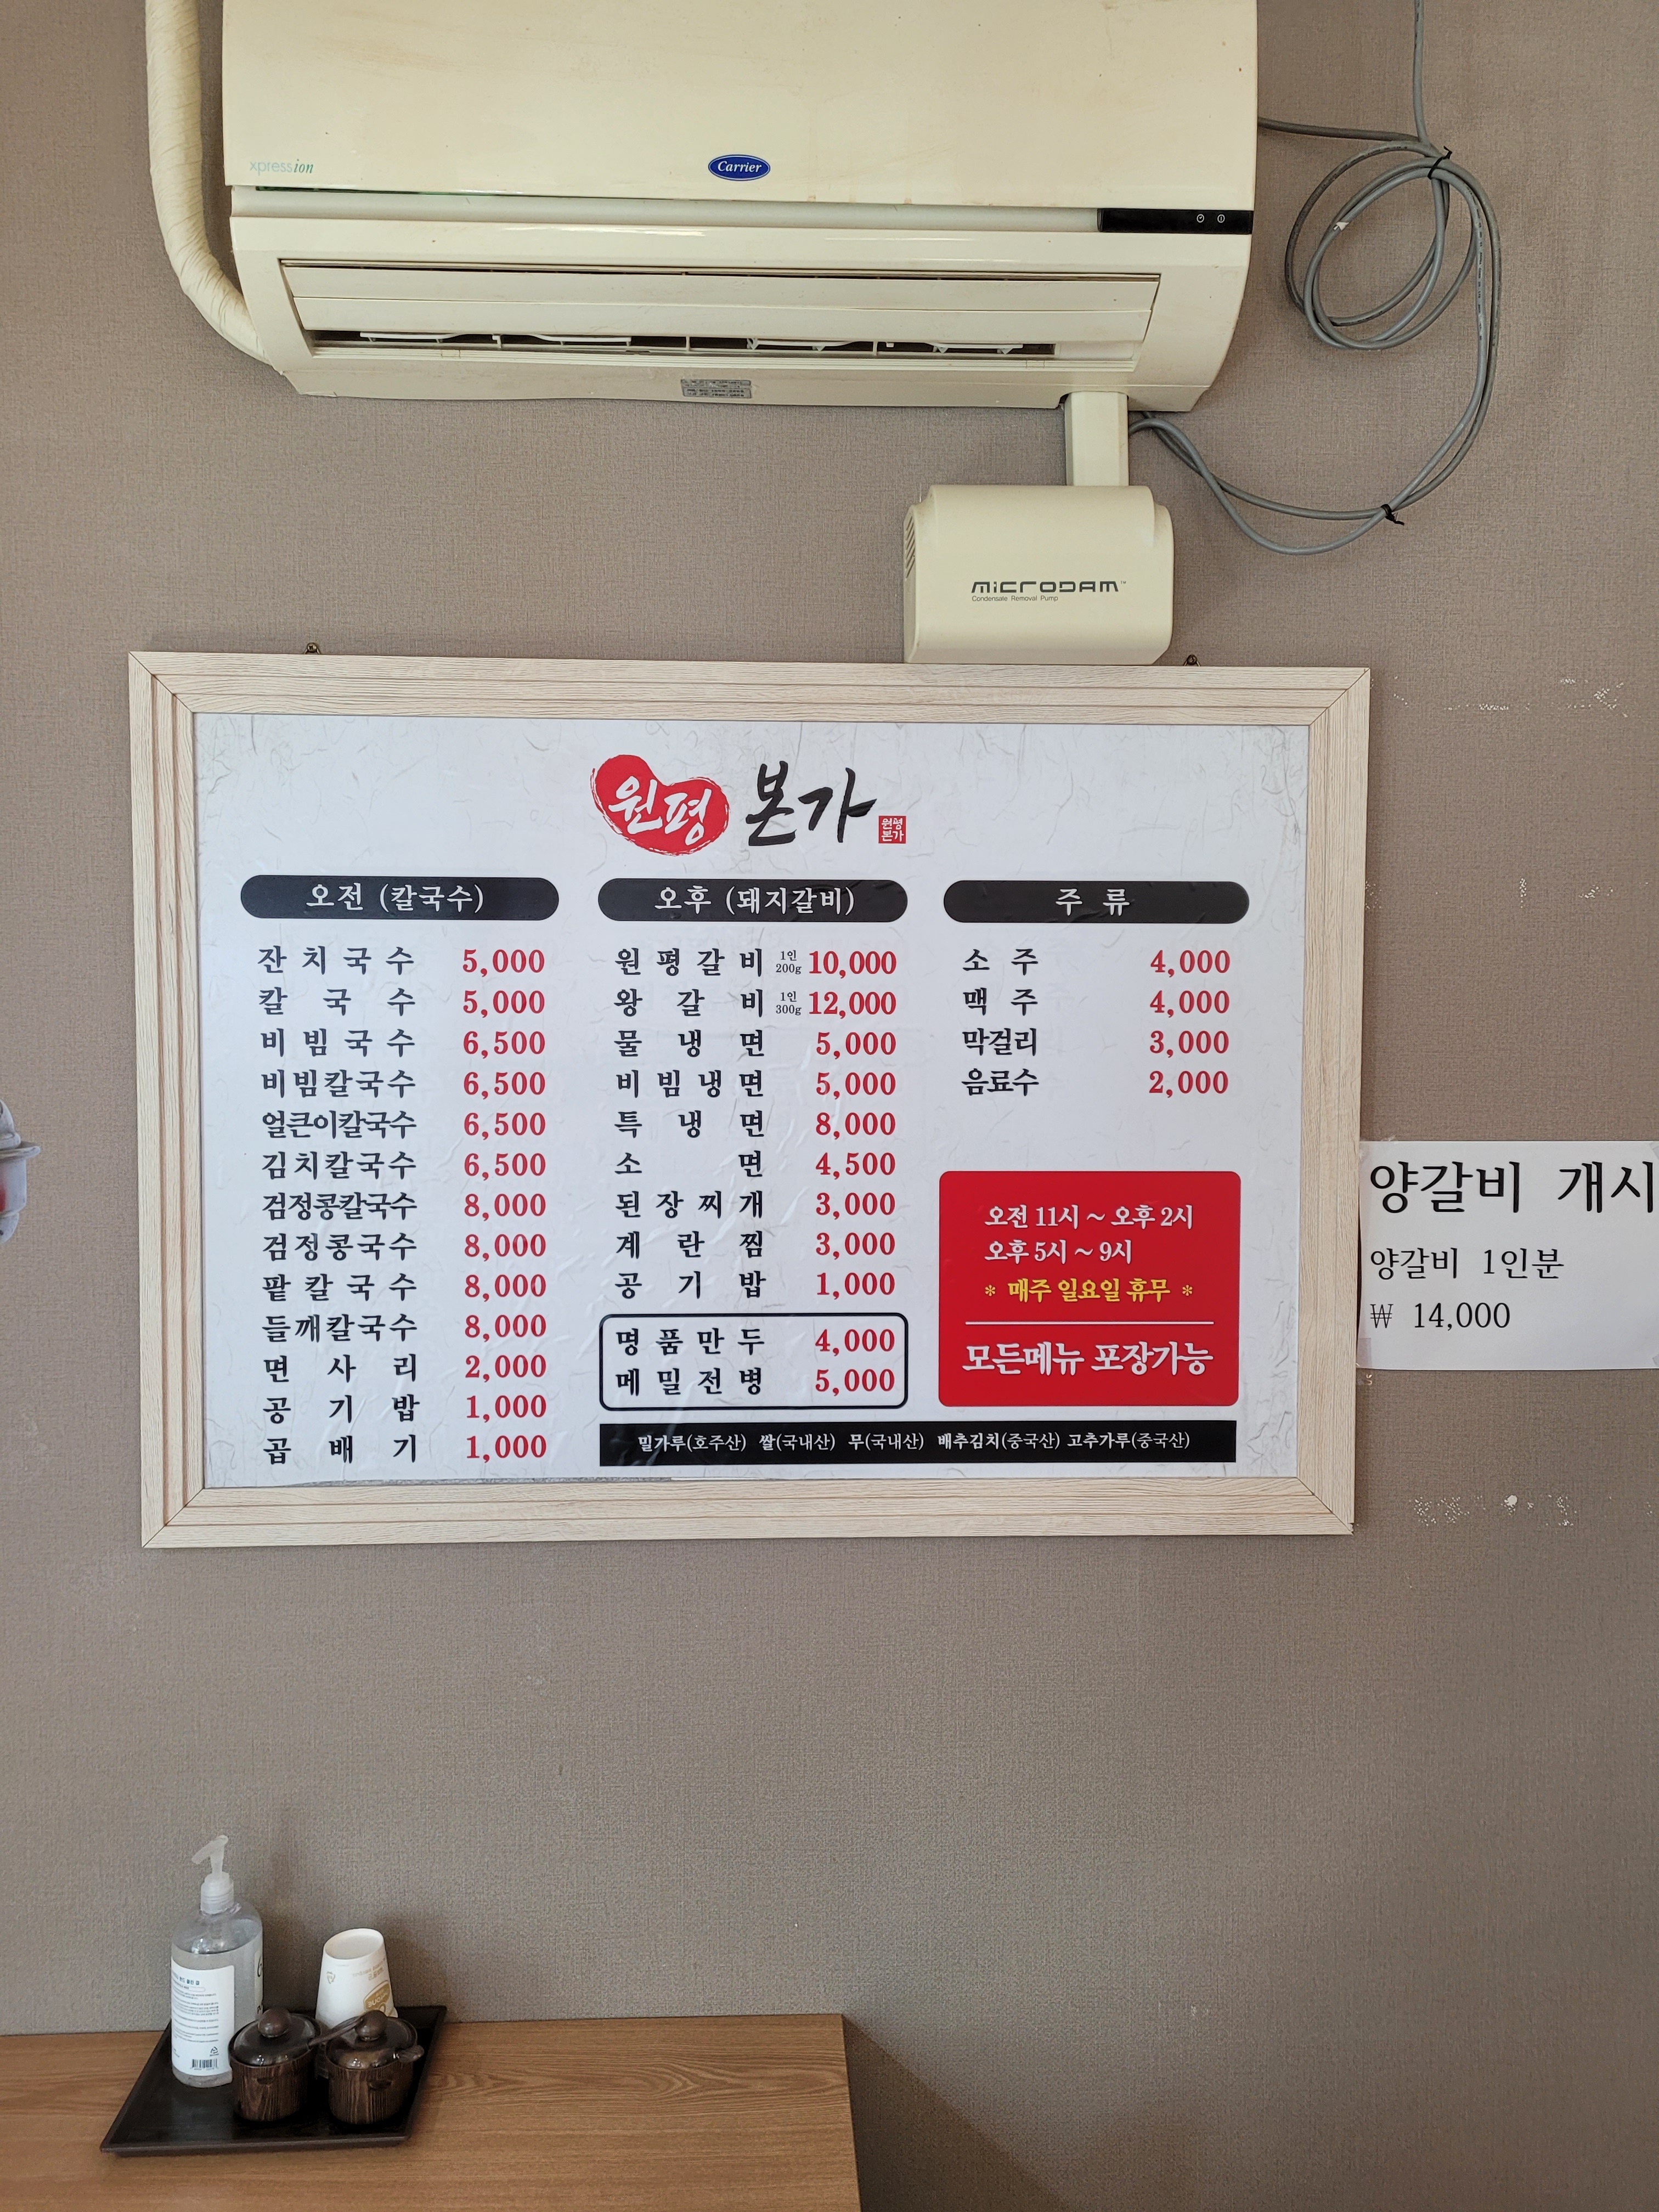 xpression
Carrier
MICRODAM™
Condensate Removal Pump
원평 본가
원평
본가
오전 (칼국수)
잔치국수 5,000
칼국수 5,000
비빔국수 6,500
비빔칼국수 6,500
얼큰이칼국수 6,500
김치칼국수 6,500
검정콩칼국수 8,000
검정콩국수 8,000
팥칼국수 8,000
들깨칼국수 8,000
면사리 2,000
공기밥 1,000
곱배기 1,000
오후 (돼지갈비)
원평갈비 1인 200g 10,000
왕갈비 1인 300g 12,000
물냉면 5,000
비빔냉면 5,000
특냉면 8,000
소면 4,500
된장찌개 3,000
계란찜 3,000
공기밥 1,000
명품만두 4,000
메밀전병 5,000
주 류
소주 4,000
맥주 4,000
막걸리 3,000
음료수 2,000
오전 11시 ~ 오후 2시
오후 5시 ~ 9시
* 매주 일요일 휴무 *
모든메뉴 포장가능
밀가루(호주산) 쌀(국내산) 무(국내산) 배추김치(중국산) 고추가루(중국산)
양갈비 개시
양갈비 1인분
₩ 14,000